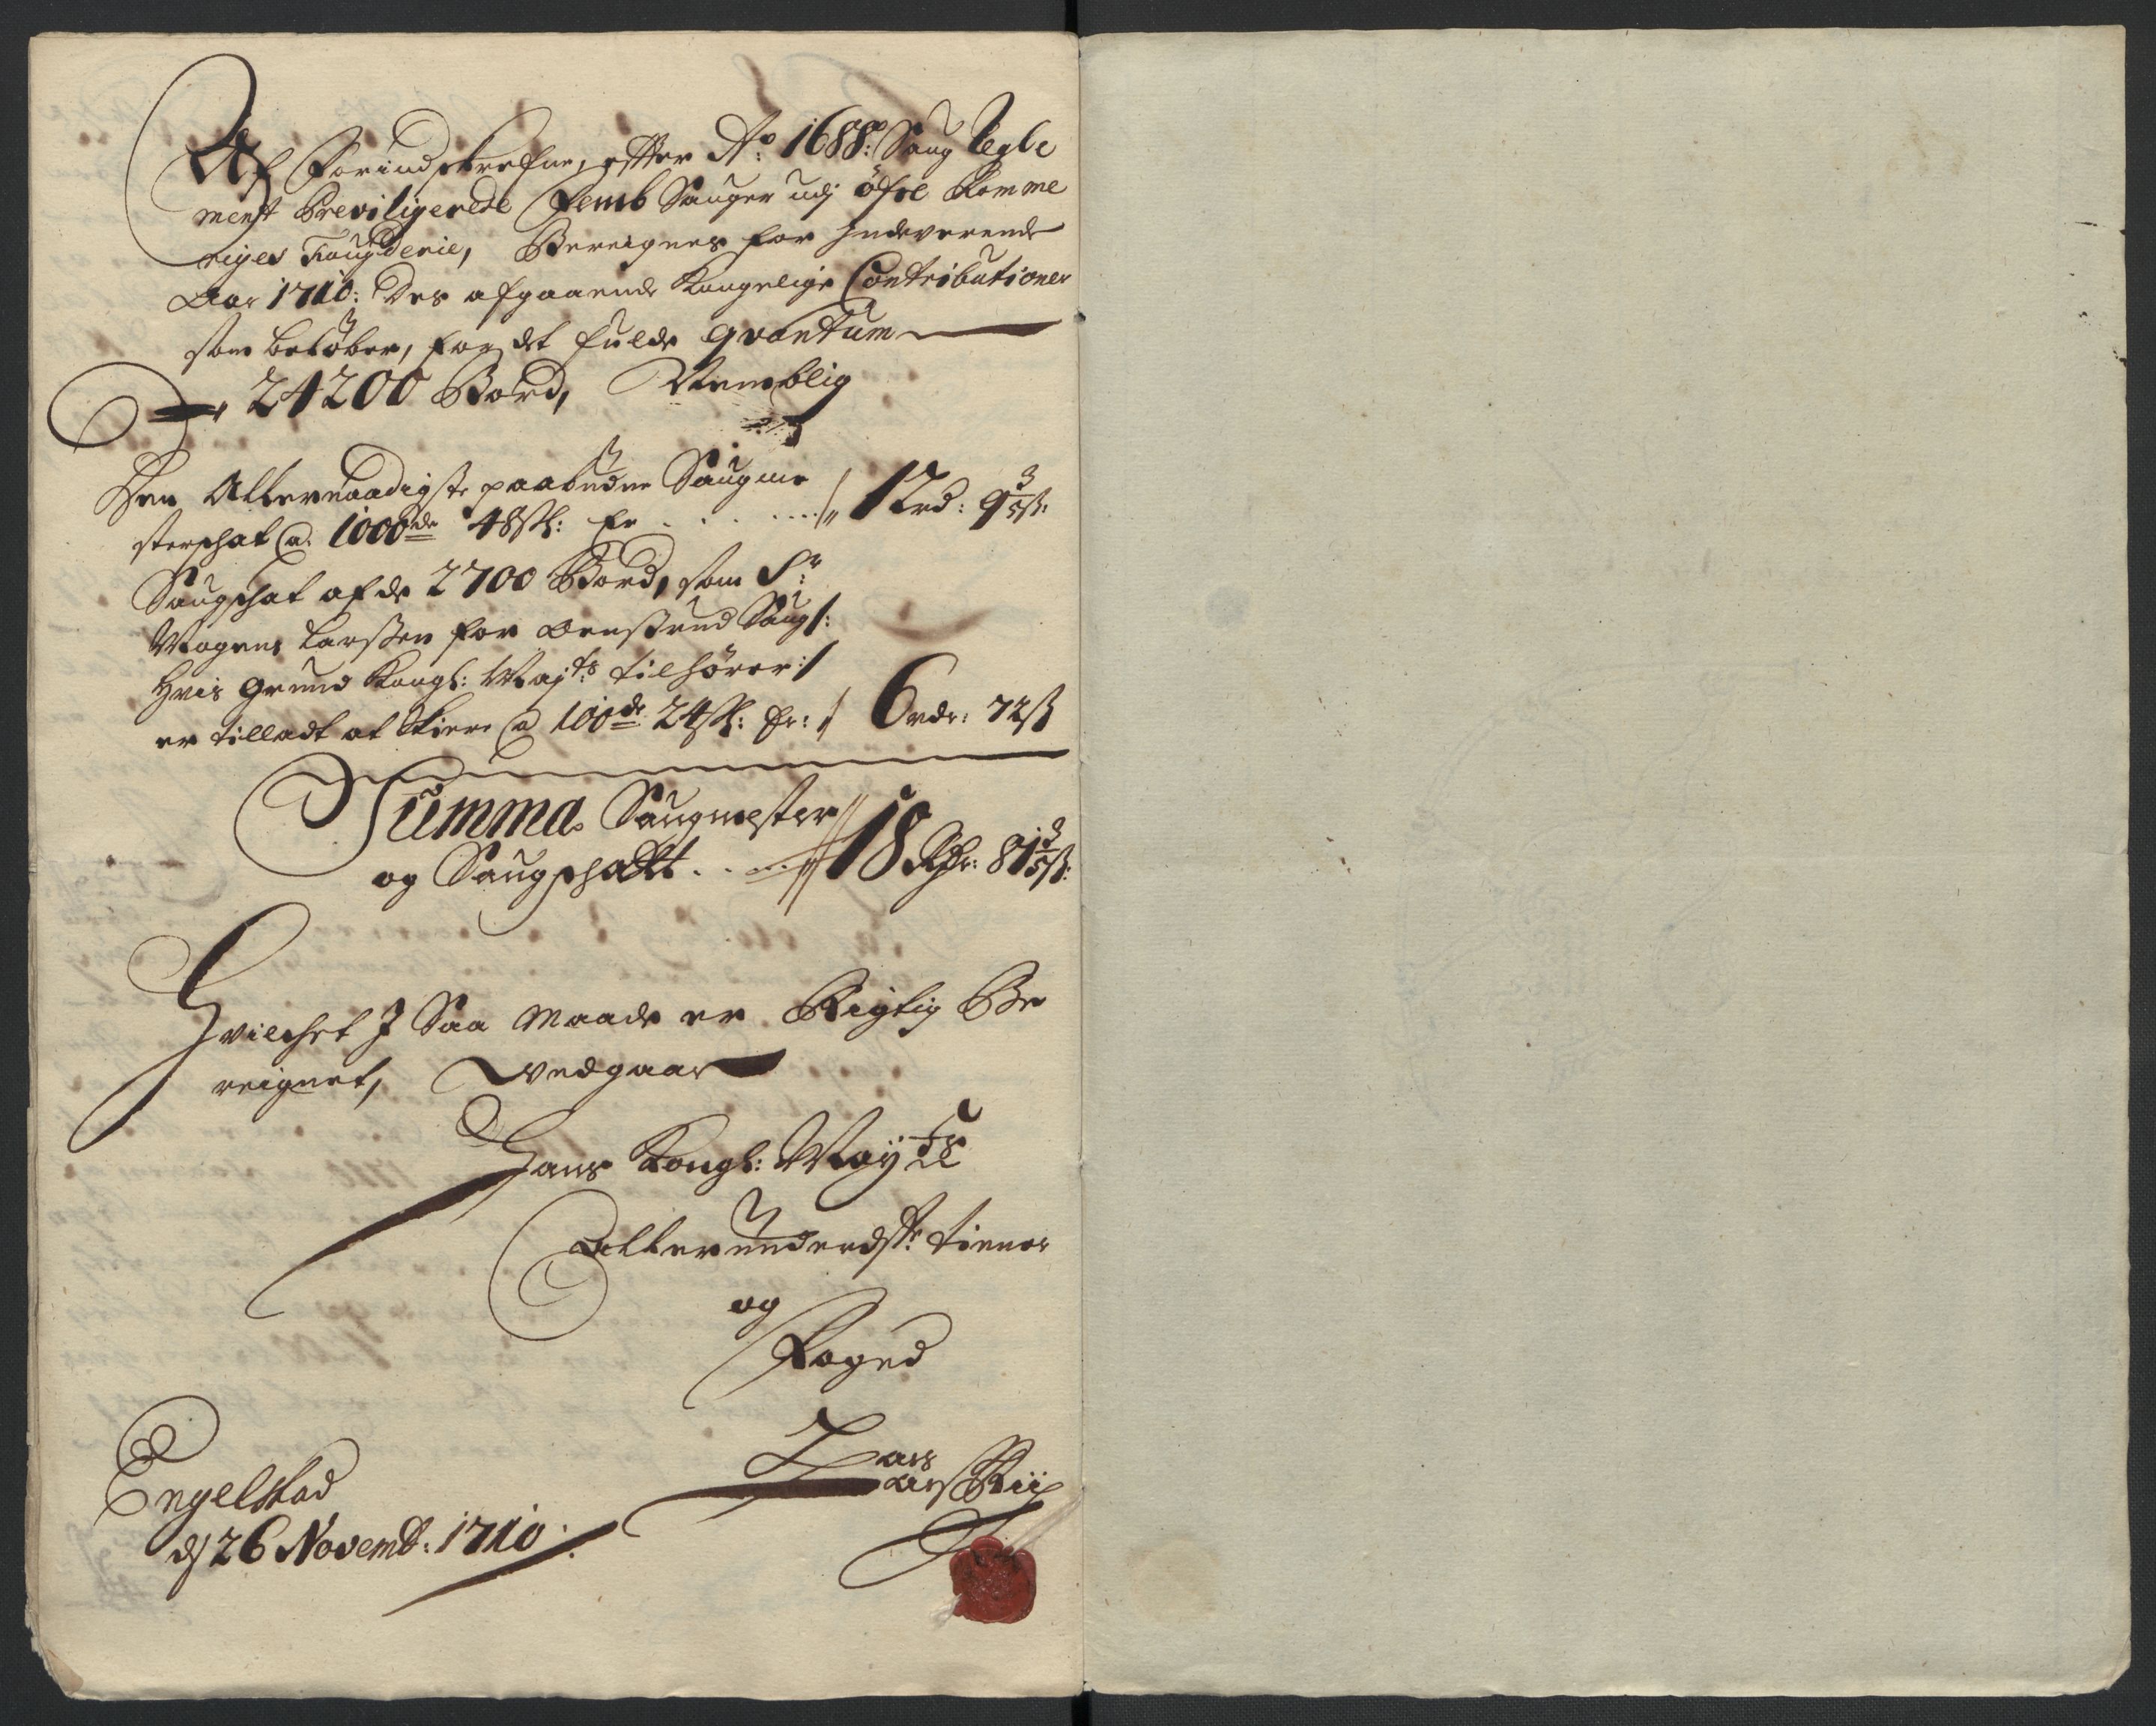 Af Forindskrefne, efter Ao: 1688: Saug Regle
ment Previligerede Femb Sauger udj öfre Romme
riges Fougderie, Bereignes for Indeverende
Aar 1710: Des afgaaende Kongelige Contributioner
som beløber, for det fulde qvantum
24200 Bord, Nemblig
Den Allernaadigste paabudne Saugme
sterschat a 1000de 48sk: Er . . . . . 12rd: 9 3/5 sk:
Saugschat af de 2700 Bord, som Sr:
Mogens Larssen for Saug/:
hvis grund Kongl: Majts: tilhörer:/
er tilladt at Skiere a 100de 24sk: Er: 6rdr: 72sk
Summa Saugmester
og Saugschatt . . . 18 Rdr: 81 3/5 sk:
Hvilchet J Saa Maade er Rigtig Be
reignet, vedgaar
Hans Kongl: Mayts
Allerunderdste tiener
og
Foged
Engelstad
dj 26 Novemb: 1710.